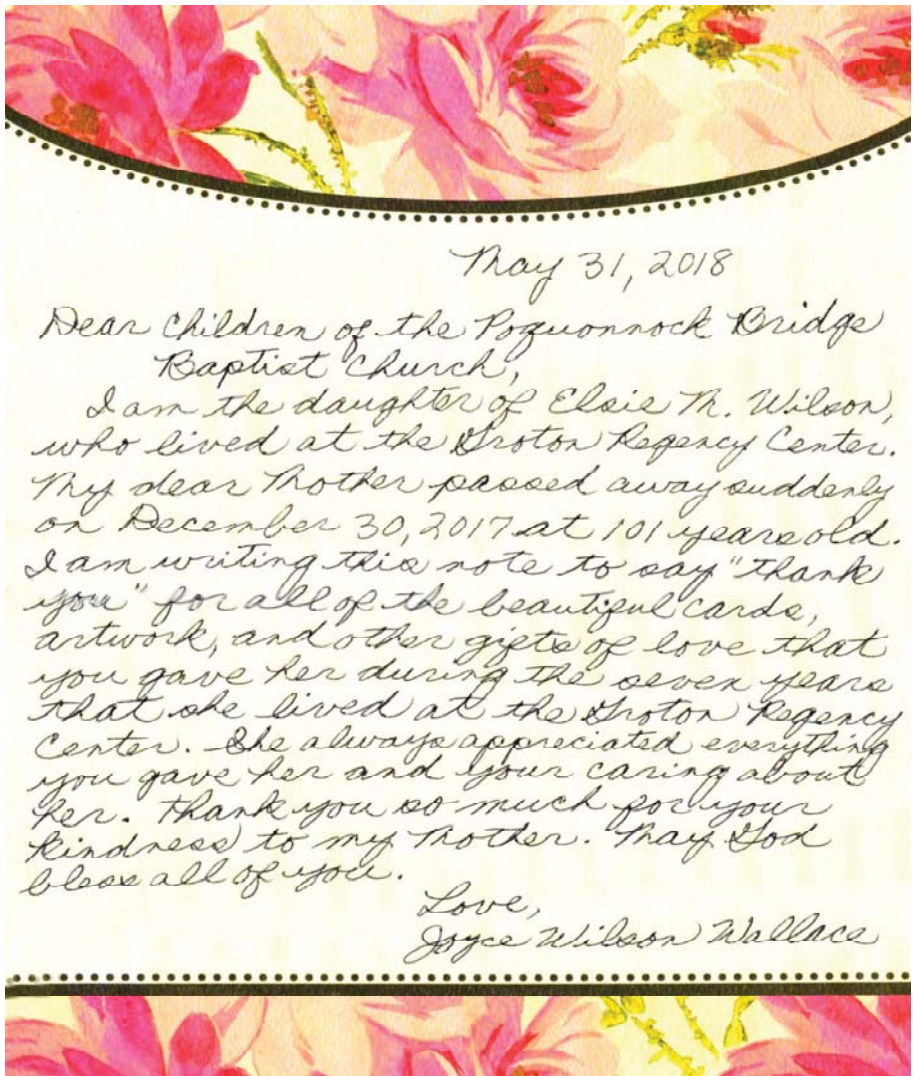 May 31, 2018
Dear Children of the Poquonnock Bridge
Baptist Church,
I am the daughter of Elsie M. Wilson,
who lived at the Groton Regency Center.
My dear Mother passed away suddenly
on December 30, 2017 at 101 years old.
I am writing this note to say "thank
you" for all of the beautiful cards,
artwork, and other gifts of love that
you gave her during the seven years
that she lived at the Groton Regency
Center. She always appreciated everything
you gave her and your caring about
her. Thank you so much for your
kindness to my Mother. May God
bless all of you.
Love,
Joyce Wilson Wallace